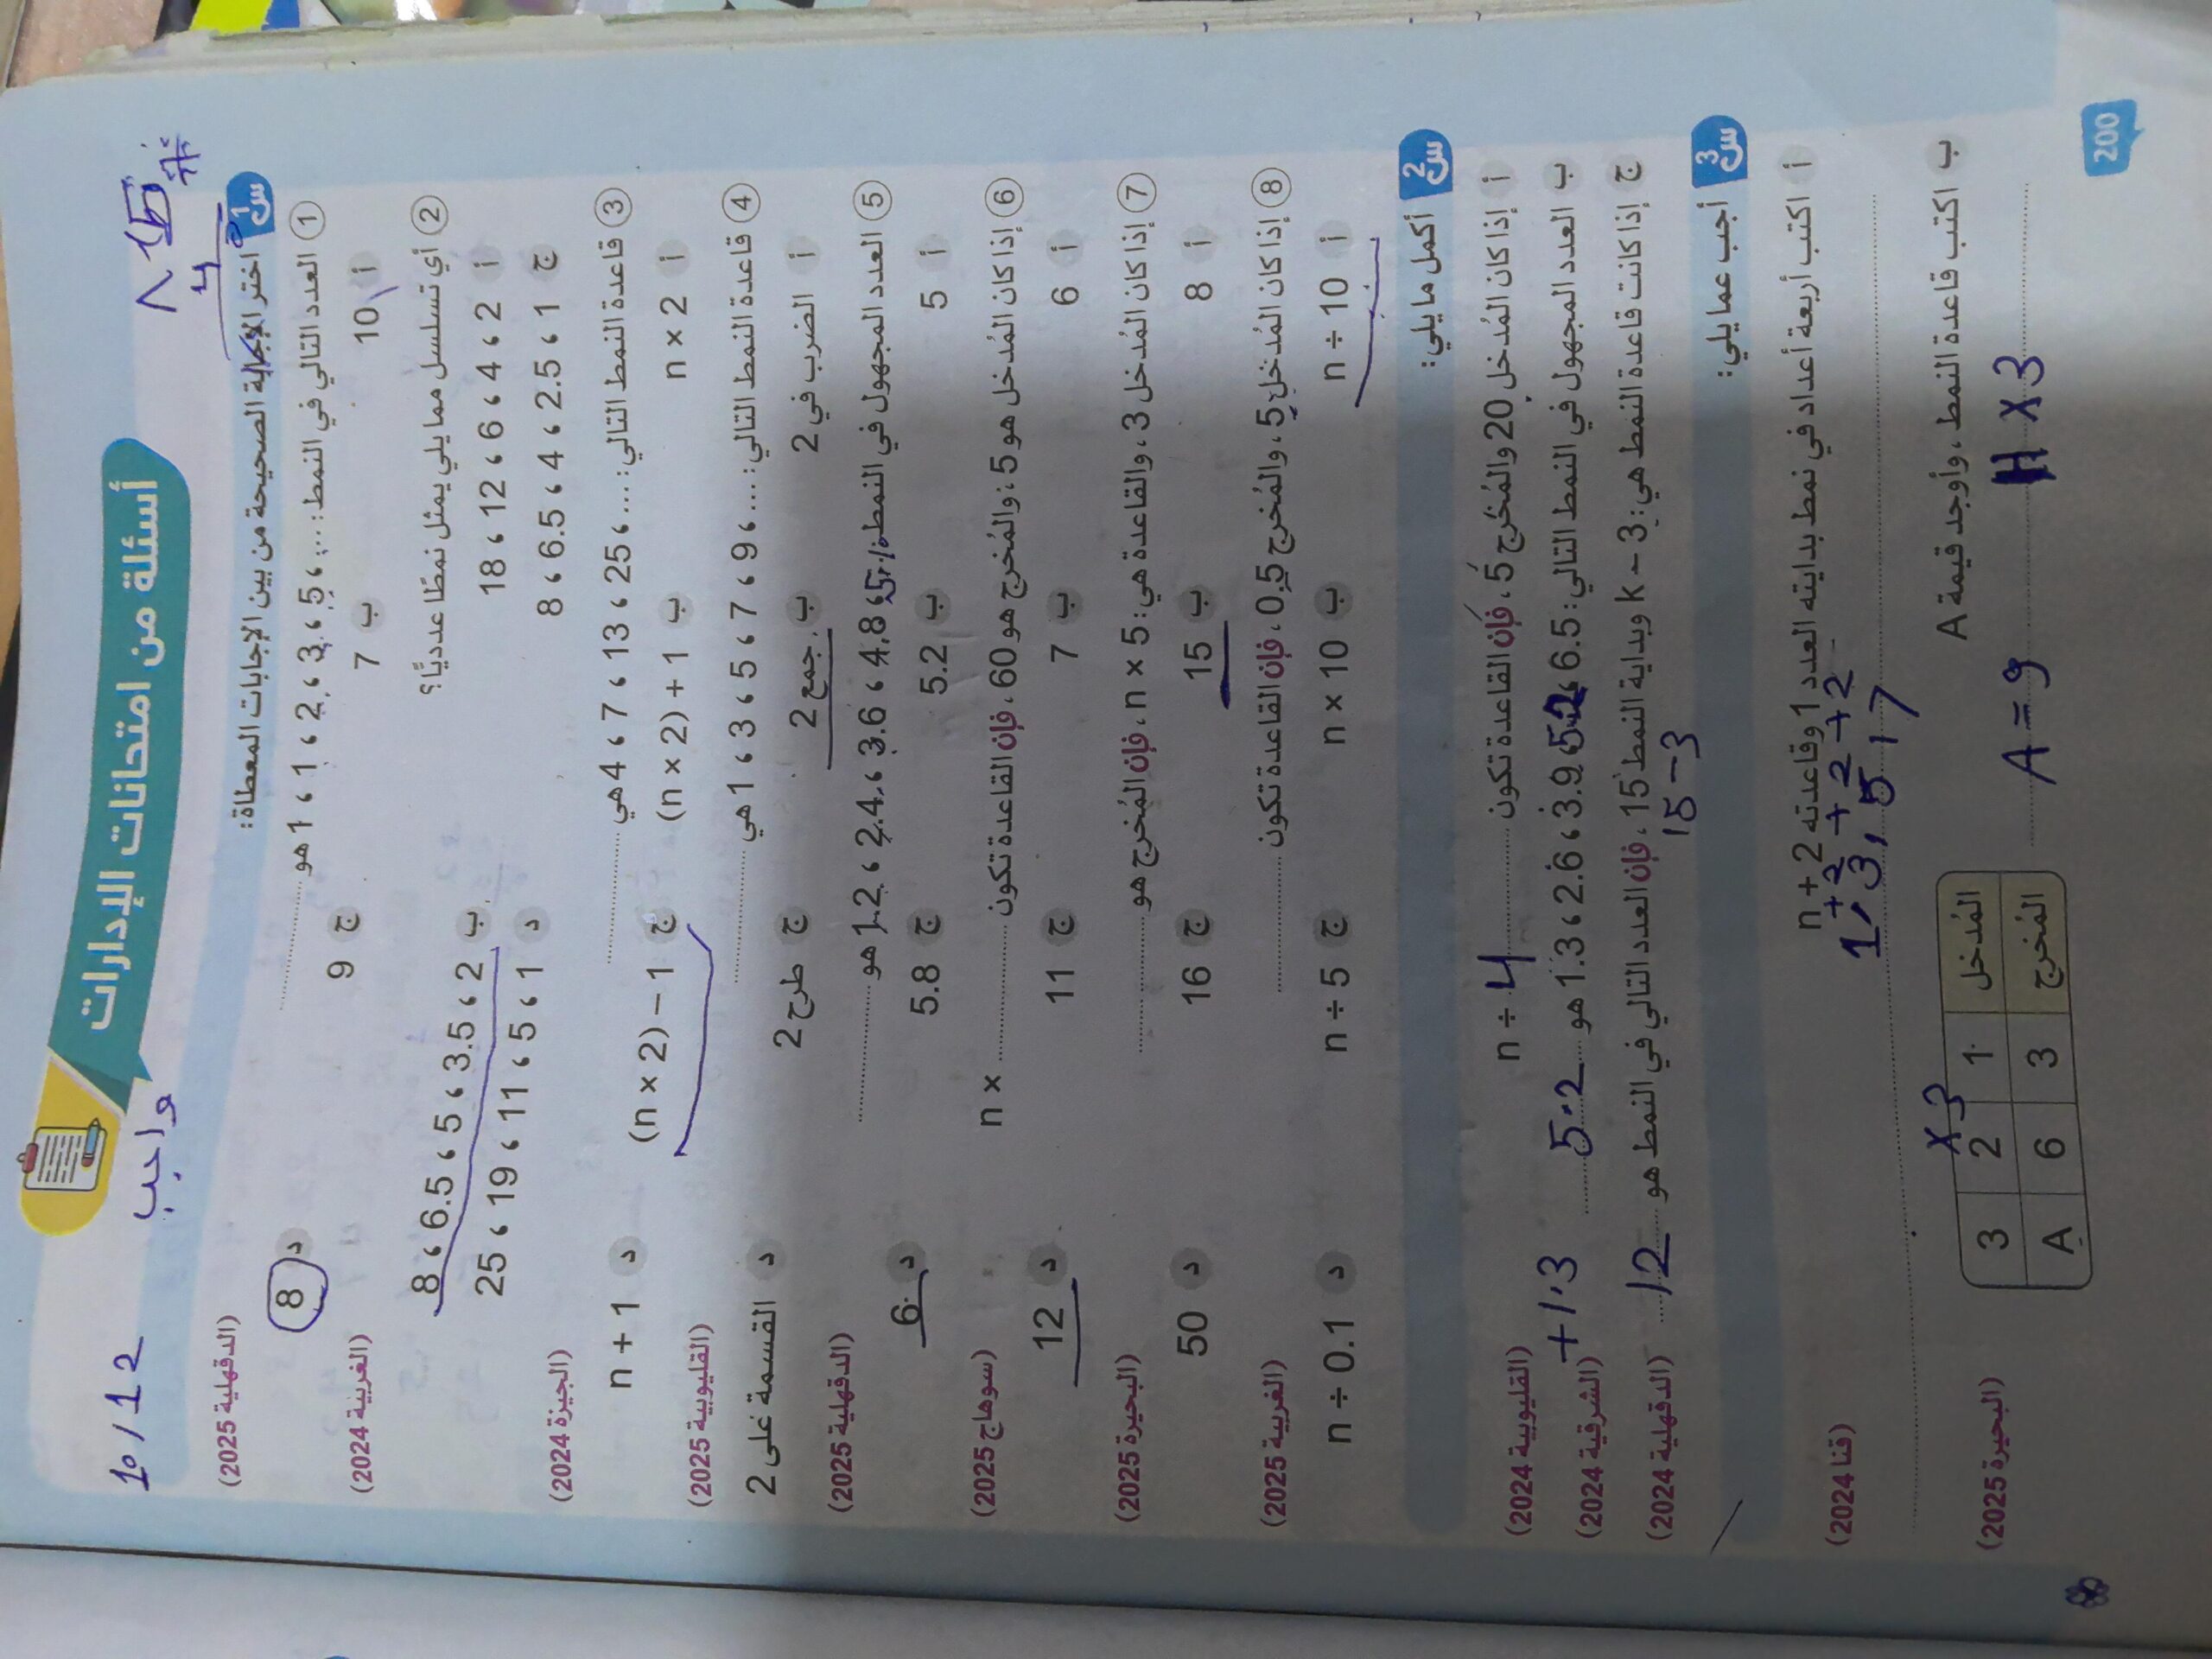 10/12
واجب
أسئلة من امتحانات الإدارات
س1 اختر الإجابة الصحيحة من بين الإجابات المعطاة:
1 العدد التالي في النمط: ... ، 5 ، 3 ، 2 ، 1 ، 1 هو .......... (الدقهلية 2025)
أ 10 ب 7 ج 9 د 8
2 أي تسلسل مما يلي يمثل نمطًا عدديًّا؟ (الغربية 2024)
أ 2 ، 4 ، 6 ، 12 ، 18 ب 2 ، 3.5 ، 5 ، 6.5 ، 8
ج 1 ، 2.5 ، 4 ، 6.5 ، 8 د 1 ، 5 ، 11 ، 19 ، 25
3 قاعدة النمط التالي: ... ، 25 ، 13 ، 7 ، 4 هي .......... (الجيزة 2024)
أ n × 2 ب (n × 2) + 1 ج (n × 2) − 1 د n + 1
4 قاعدة النمط التالي: ... ، 9 ، 7 ، 5 ، 3 ، 1 هي .......... (القليوبية 2025)
أ الضرب في 2 ب جمع 2 ج طرح 2 د القسمة على 2
5 العدد المجهول في النمط: ، 4.8 ، 3.6 ، 2.4 ، 1.2 هو .......... (الدقهلية 2025)
أ 5 ب 5.2 ج 5.8 د 6
6 إذا كان المُدخل هو 5، والمُخرج هو 60، فإن القاعدة تكون .......... n × (سوهاج 2025)
أ 6 ب 7 ج 11 د 12
7 إذا كان المُدخل 3، والقاعدة هي: n × 5، فإن المُخرج هو .......... (البحيرة 2025)
أ 8 ب 15 ج 16 د 50
8 إذا كان المُدخل 5، والمُخرج 0.5، فإن القاعدة تكون .......... (الغربية 2025)
أ n ÷ 10 ب n × 10 ج n ÷ 5 د n ÷ 0.1
س2 أكمل ما يلي:
أ إذا كان المُدخل 20 والمُخرج 5، فإن القاعدة تكون n ÷ 4 (القليوبية 2024)
ب العدد المجهول في النمط التالي: 6.5 ، 5.2 ، 3.9 ، 2.6 ، 1.3 هو 5.2 +1.3 (الشرقية 2024)
ج إذا كانت قاعدة النمط هي: k − 3 وبداية النمط 15، فإن العدد التالي في النمط هو 12 (الدقهلية 2024)
15 − 3
س3 أجب عما يلي:
أ اكتب أربعة أعداد في نمط بدايته العدد 1 وقاعدته n + 2 (قنا 2024)
+2 +2 +2
1, 3, 5, 7
ب اكتب قاعدة النمط، وأوجد قيمة A (البحيرة 2025)
×3
المُدخل 1 2 3
المُخرج 3 6 A
× 3
A = 9
200